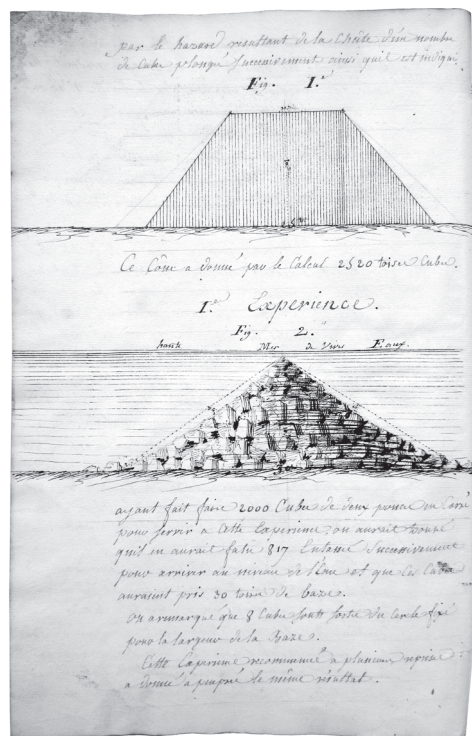 par le hazard resultant de la Chûte d'un nombre
de Cube plongé Successivement ainsi quil est indiqué
Fig. 1.re
25 To.
Ce Cône a donné par le Calcul 2520 toises Cube.
1.re Experience.
Fig. 2.e
haute Mer de Vives Eaux.
ayant fait faire 2000 Cube de deux pouce en Carré
pour servir a Cette Experience, on aurait trouvé
qu'il en aurait falu 817 Entassé Successivement
pour arriver au niveau de l'Eau et que Ces Cubes
auraient pris 30 toises de baze.
On a remarqué que 8 Cube sont sortie du Cercle fixé
pour la largeur de la Baze.
Cette Experience recommencé a plusieurs reprises
a donné a peu pré le même résultat.